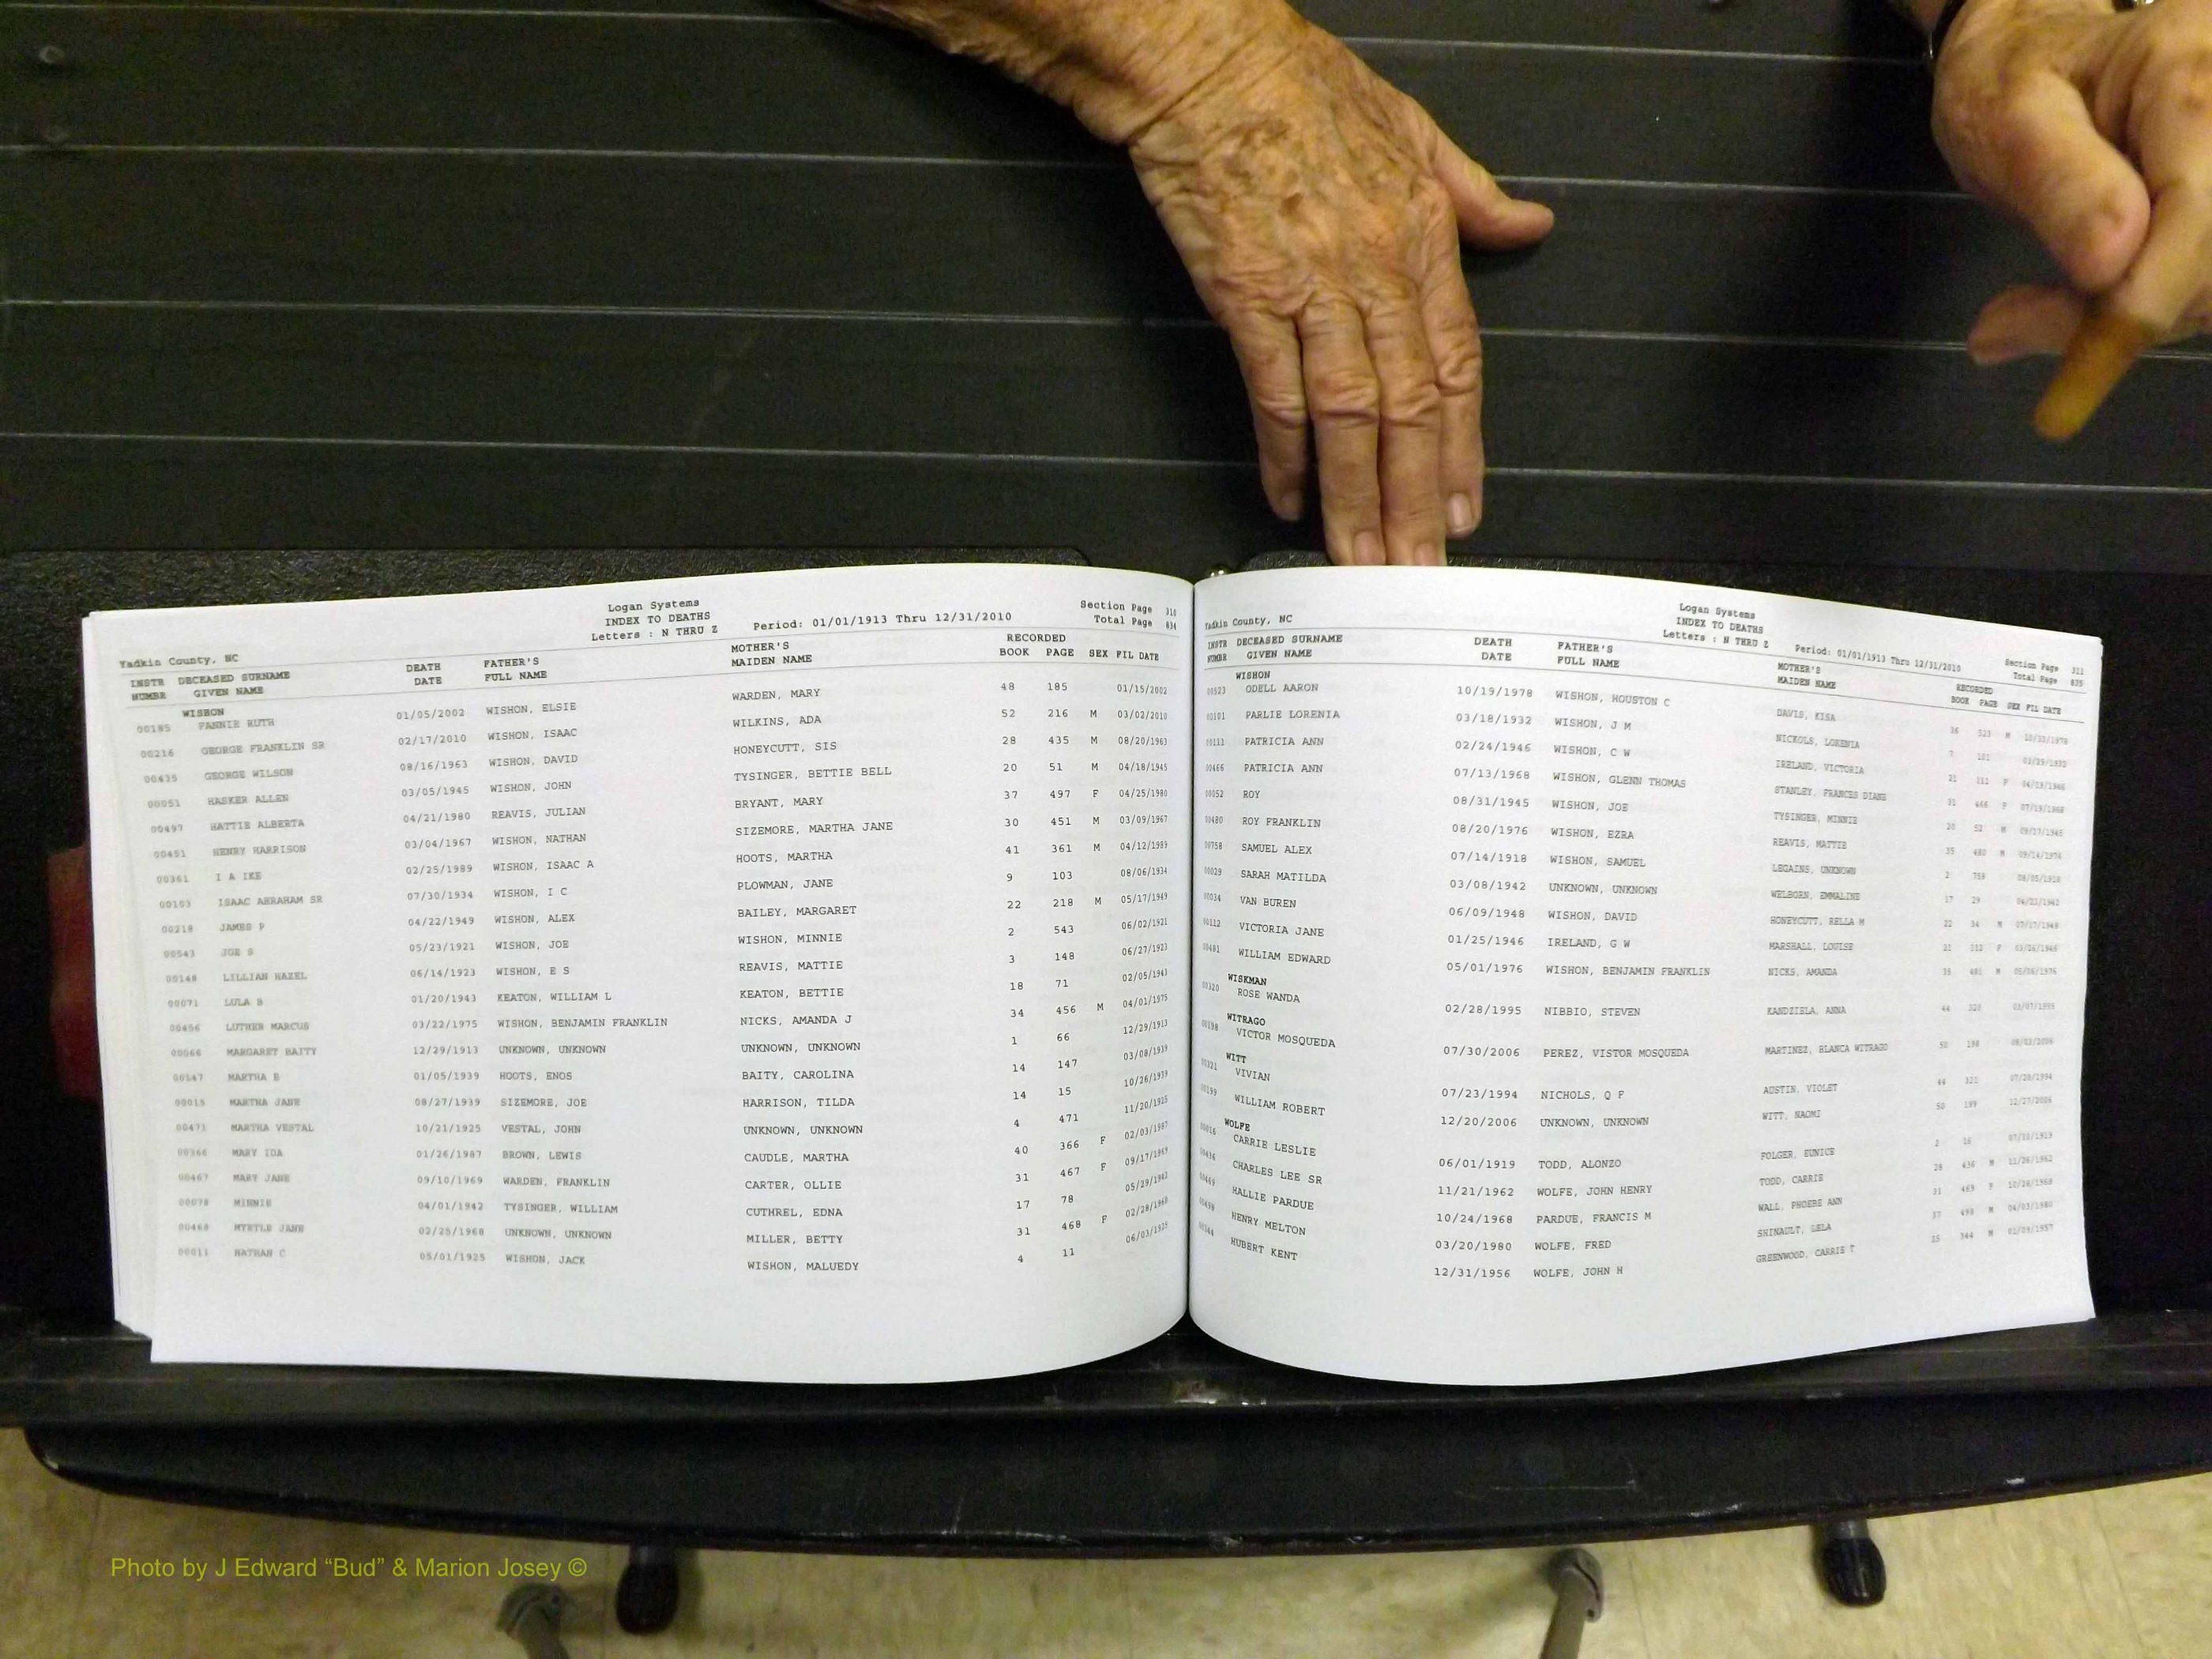 Logan Systems
INDEX TO DEATHS
Letters : N THRU Z Period: 01/01/1913 Thru 12/31/2010 Section Page 310
Yadkin County, NC Total Page 834
INSTR DECEASED SURNAME DEATH FATHER'S MOTHER'S RECORDED
NUMBR GIVEN NAME DATE FULL NAME MAIDEN NAME BOOK PAGE SEX FIL DATE
WISHON
00185 FANNIE RUTH 01/05/2002 WISHON, ELSIE WARDEN, MARY 48 185 01/15/2002
00216 GEORGE FRANKLIN SR 02/17/2010 WISHON, ISAAC WILKINS, ADA 52 216 M 03/02/2010
00435 GEORGE WILSON 08/16/1963 WISHON, DAVID HONEYCUTT, SIS 28 435 M 08/20/1963
00051 HASKER ALLEN 03/05/1945 WISHON, JOHN TYSINGER, BETTIE BELL 20 51 M 04/18/1945
00497 HATTIE ALBERTA 04/21/1980 REAVIS, JULIAN BRYANT, MARY 37 497 F 04/25/1980
00451 HENRY HARRISON 03/04/1967 WISHON, NATHAN SIZEMORE, MARTHA JANE 30 451 M 03/09/1967
00361 I A IKE 02/25/1989 WISHON, ISAAC A HOOTS, MARTHA 41 361 M 04/12/1989
00103 ISAAC ABRAHAM SR 07/30/1934 WISHON, I C PLOWMAN, JANE 9 103 08/06/1934
00218 JAMES P 04/22/1949 WISHON, ALEX BAILEY, MARGARET 22 218 M 05/17/1949
00543 JOE S 05/23/1921 WISHON, JOE WISHON, MINNIE 2 543 06/02/1921
00148 LILLIAN HAZEL 06/14/1923 WISHON, E S REAVIS, MATTIE 3 148 06/27/1923
00071 LULA B 01/20/1943 KEATON, WILLIAM L KEATON, BETTIE 18 71 02/05/1943
00456 LUTHER MARCUS 03/22/1975 WISHON, BENJAMIN FRANKLIN NICKS, AMANDA J 34 456 M 04/01/1975
00066 MARGARET BAITY 12/29/1913 UNKNOWN, UNKNOWN UNKNOWN, UNKNOWN 1 66 12/29/1913
00147 MARTHA E 01/05/1939 HOOTS, ENOS BAITY, CAROLINA 14 147 03/08/1939
00015 MARTHA JANE 08/27/1939 SIZEMORE, JOE HARRISON, TILDA 14 15 10/26/1939
00471 MARTHA VESTAL 10/21/1925 VESTAL, JOHN UNKNOWN, UNKNOWN 4 471 11/20/1925
00366 MARY IDA 01/26/1987 BROWN, LEWIS CAUDLE, MARTHA 40 366 F 02/03/1987
00467 MARY JANE 09/10/1969 WARDEN, FRANKLIN CARTER, OLLIE 31 467 F 09/17/1969
00078 MINNIE 04/01/1942 TYSINGER, WILLIAM CUTHREL, EDNA 17 78 05/29/1942
00468 MYRTLE JANE 02/25/1968 UNKNOWN, UNKNOWN MILLER, BETTY 31 468 F 02/28/1968
00011 NATHAN C 05/01/1925 WISHON, JACK WISHON, MALUEDY 4 11 06/03/1925
Logan Systems
INDEX TO DEATHS
Letters : N THRU Z Period: 01/01/1913 Thru 12/31/2010 Section Page 311
Yadkin County, NC Total Page 835
INSTR DECEASED SURNAME DEATH FATHER'S MOTHER'S RECORDED
NUMBR GIVEN NAME DATE FULL NAME MAIDEN NAME BOOK PAGE SEX FIL DATE
WISHON
00523 ODELL AARON 10/19/1978 WISHON, HOUSTON C DAVIS, KISA 36 523 M 10/30/1978
00101 PARLIE LORENIA 03/18/1932 WISHON, J M NICKOLS, LORENIA 7 101 03/29/1932
00111 PATRICIA ANN 02/24/1946 WISHON, C W IRELAND, VICTORIA 21 111 F
00466 PATRICIA ANN 07/13/1968 WISHON, GLENN THOMAS STANLEY, FRANCES DIANE 31 466 F 07/19/1968
00052 ROY 08/31/1945 WISHON, JOE TYSINGER, MINNIE 20 52 M 09/17/1945
00480 ROY FRANKLIN 08/20/1976 WISHON, EZRA REAVIS, MATTIE 35 480 M 09/14/1976
00758 SAMUEL ALEX 07/14/1918 WISHON, SAMUEL LEGAINS, UNKNOWN 2 758 08/05/1918
00029 SARAH MATILDA 03/08/1942 UNKNOWN, UNKNOWN WELBORN, EMMALINE 17 29 04/23/1942
00034 VAN BUREN 06/09/1948 WISHON, DAVID HONEYCUTT, BELLA M 22 34 M 07/17/1948
00112 VICTORIA JANE 01/25/1946 IRELAND, G W MARSHALL, LOUISE 21 112 F 03/26/1946
00481 WILLIAM EDWARD 05/01/1976 WISHON, BENJAMIN FRANKLIN NICKS, AMANDA 35 481 M 05/06/1976
WISKMAN
00320 ROSE WANDA 02/28/1995 NIBBIO, STEVEN KANDZIELA, ANNA 44 320 03/07/1995
WITRAGO
00198 VICTOR MOSQUEDA 07/30/2006 PEREZ, VISTOR MOSQUEDA MARTINEZ, BLANCA WITRAGO 50 198 08/02/2006
WITT
00321 VIVIAN 07/23/1994 NICHOLS, Q F AUSTIN, VIOLET 44 321 07/28/1994
00199 WILLIAM ROBERT 12/20/2006 UNKNOWN, UNKNOWN WITT, NAOMI 50 199 12/27/2006
WOLFE
00016 CARRIE LESLIE 06/01/1919 TODD, ALONZO FOLGER, EUNICE 2 16 07/10/1919
00436 CHARLES LEE SR 11/21/1962 WOLFE, JOHN HENRY TODD, CARRIE 28 436 M 11/26/1962
00469 HALLIE PARDUE 10/24/1968 PARDUE, FRANCIS M WALL, PHOEBE ANN 31 469 F 10/28/1968
00498 HENRY MELTON 03/20/1980 WOLFE, FRED SHINAULT, LELA 37 498 M 04/03/1980
00344 HUBERT KENT 12/31/1956 WOLFE, JOHN H GREENWOOD, CARRIE T 25 344 M 01/09/1957
Photo by J Edward “Bud” & Marion Josey ©